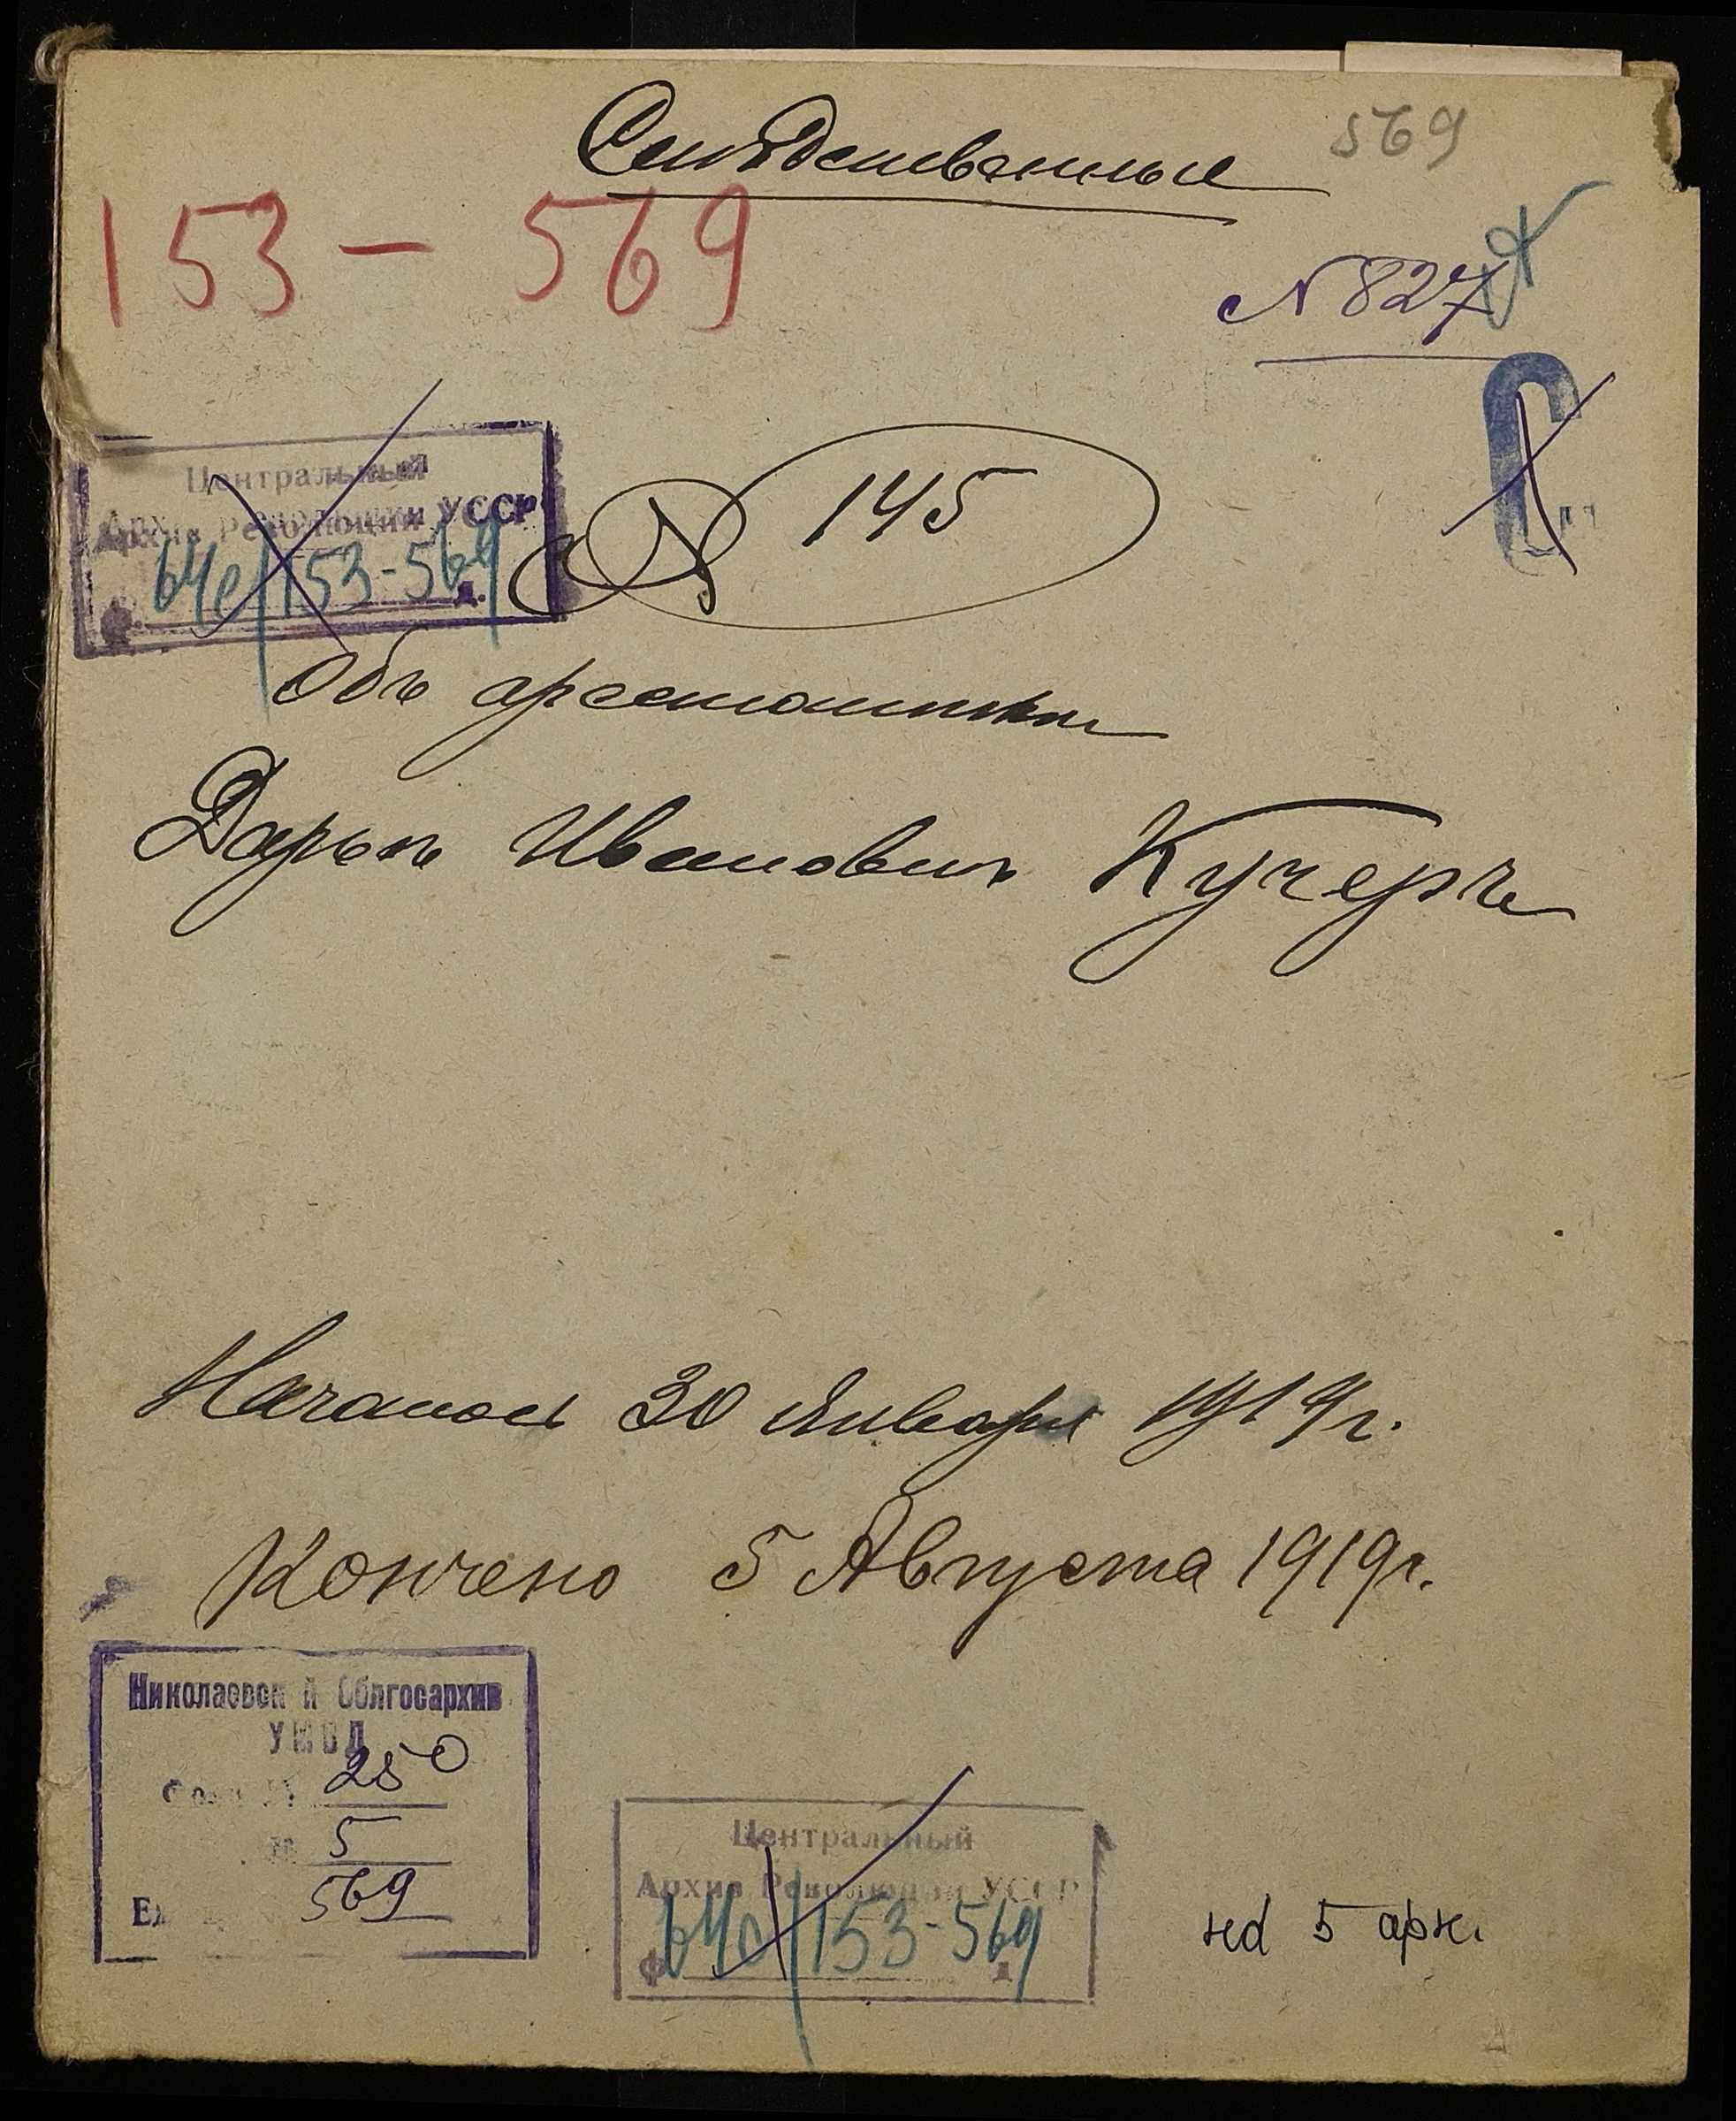 Слѣдственные
569
153 – 569
№ 827
Центральный
Архив Революции УССР
153-569
д.
№ 145
Объ арестантки
Дарьи Ивановнѣ Кучерь
Началось 30 Января 1919 г.
Кончено 5 Августа 1919 г.
Николаевский Облгосархив
УМВД
Фонд № 250
5
569
Центральный
Архив Революции УССР
Ф. 153-569
д.
на 5 арк.